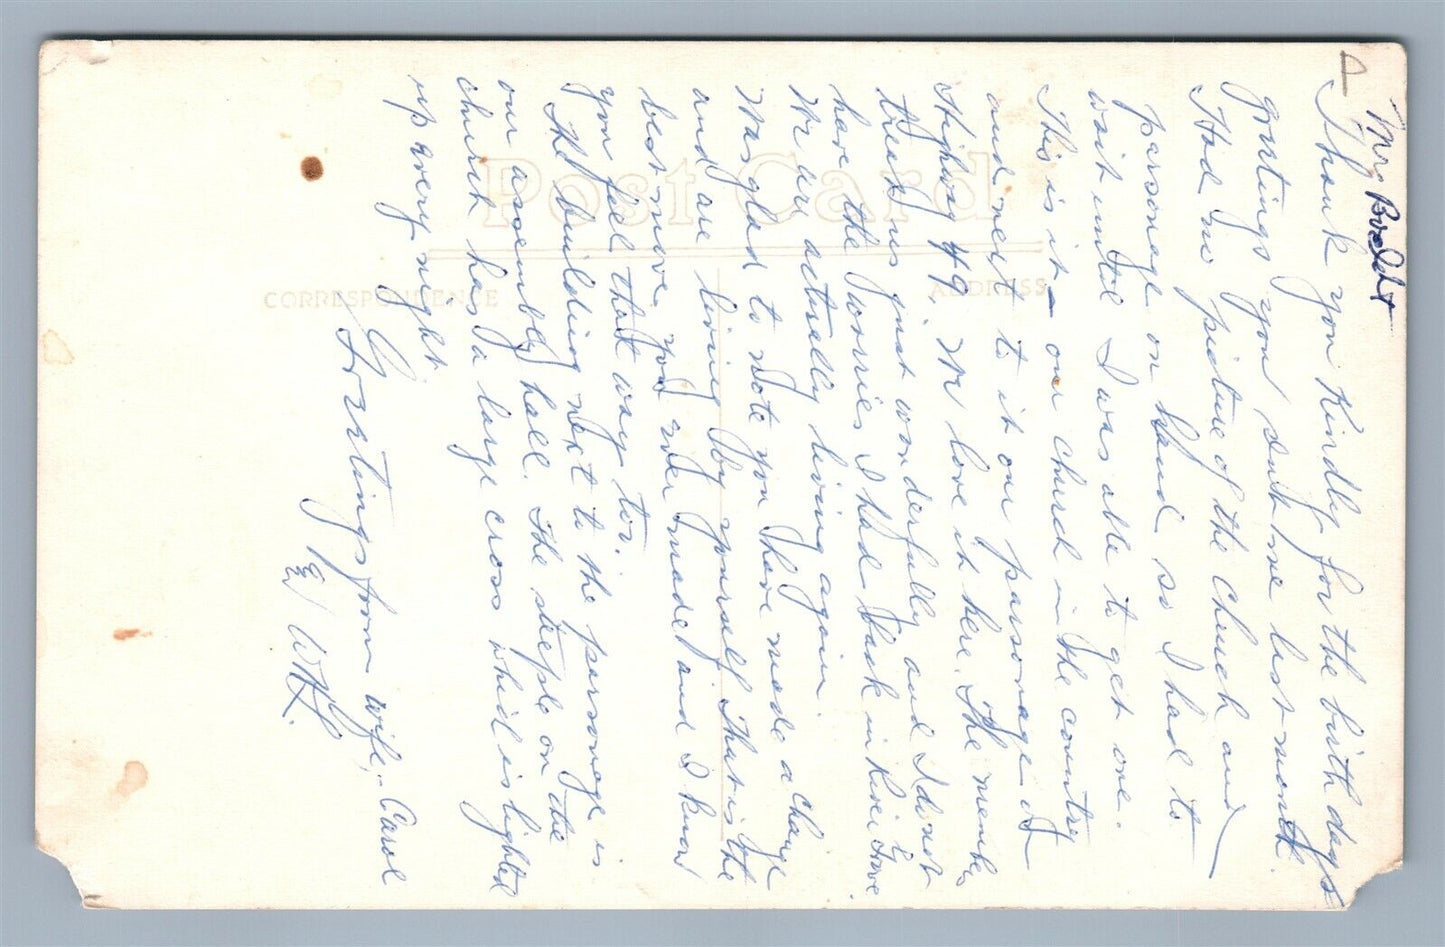 Mrs
Thank you kindly for the birthdays
greetings you sent me last month.
Had no picture of the church and
parsonage on hand so I had to
wait until I was able to get one.
This is it - our church in the country
and next to it our parsonage of
Highway 49. We love it here. The members
treat us just wonderfully and I do not
have the worries I had back in River Grove.
We are actually living again.
Was glad to note you have made a change
and are living by yourself. That is the
best move you ever made and I know
you feel that way too.
The building next to the parsonage is
our assembly hall. The steeple on the
church has a large cross which is lighted
up every night.
Greetings from wife, - Carol
& WHL.
Post Card
CORRESPONDENCE
ADDRESS